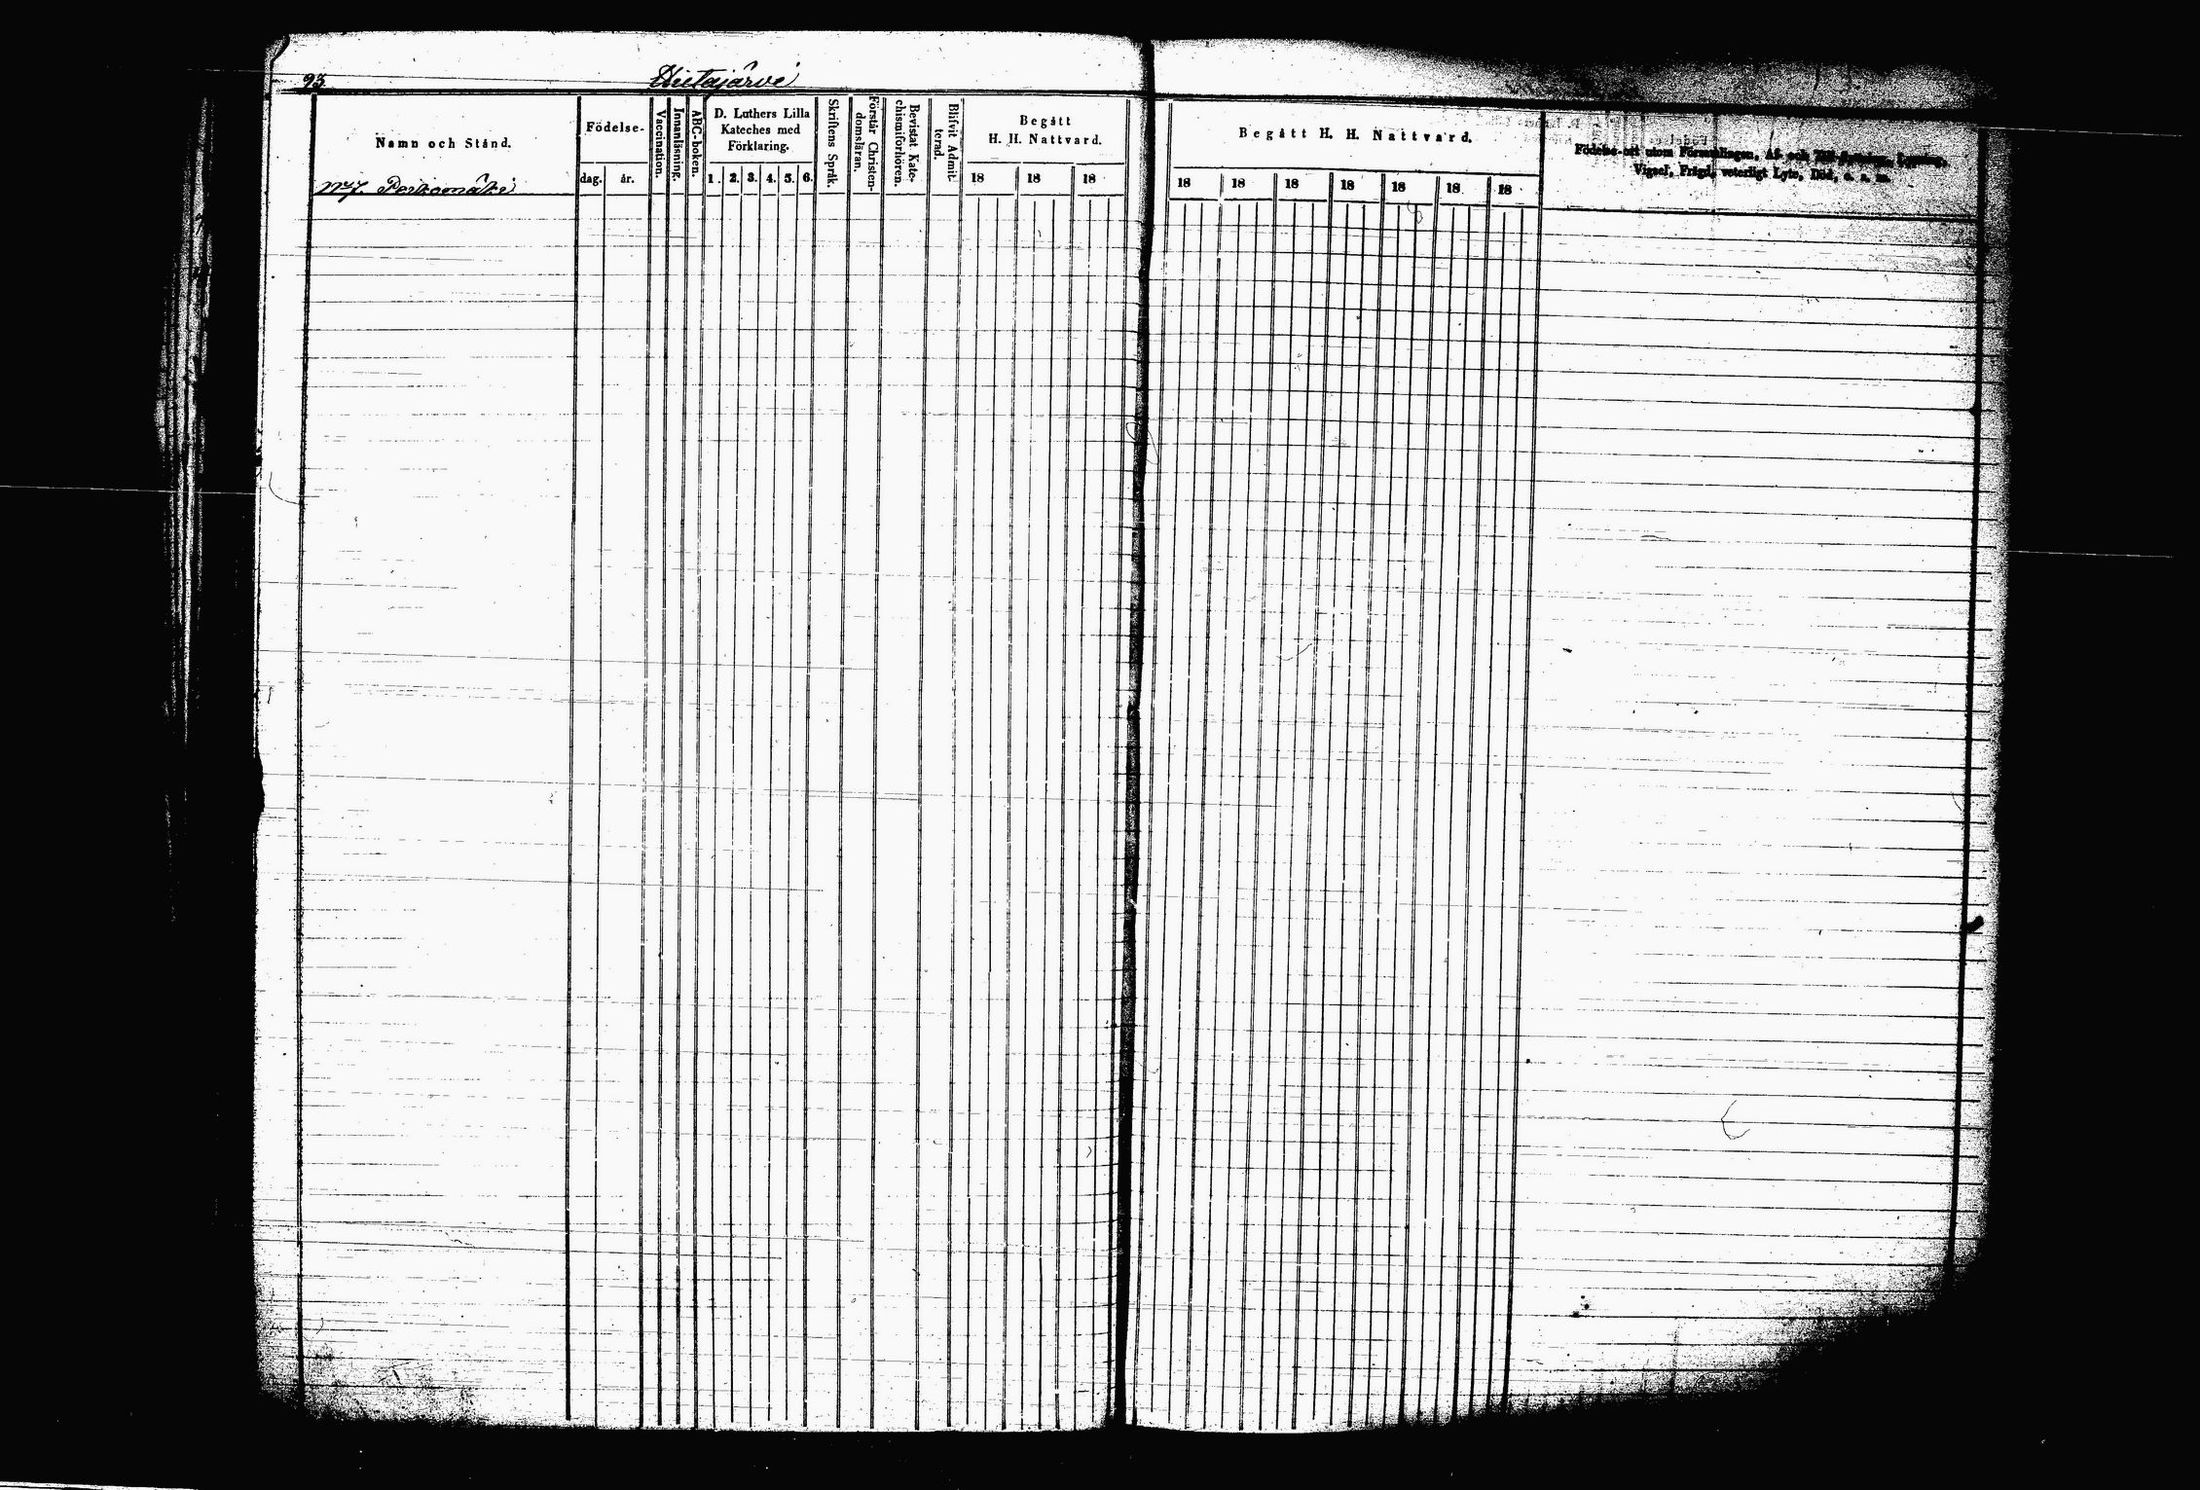 93
Hietajärvi
Namn och Stånd.
Födelse-
dag.
år.
Vaccination.
Innanläsning.
ABC-boken.
D. Luthers Lilla
Kateches med
Förklaring.
1. 2. 3. 4. 5. 6.
Skriftens Språk.
Förstår Christen-
domsläran.
Bevistat Kate-
chismiförhören.
Blifvit Admit-
terad.
Begått
H. H. Nattvard.
18 18 18
Begått H. H. Nattvard.
18 18 18 18 18 18 18
Födelse-ort utom Församlingen, Af- och
Vigsel, Frägd, veterligt Lyte, Död, o. s. m.